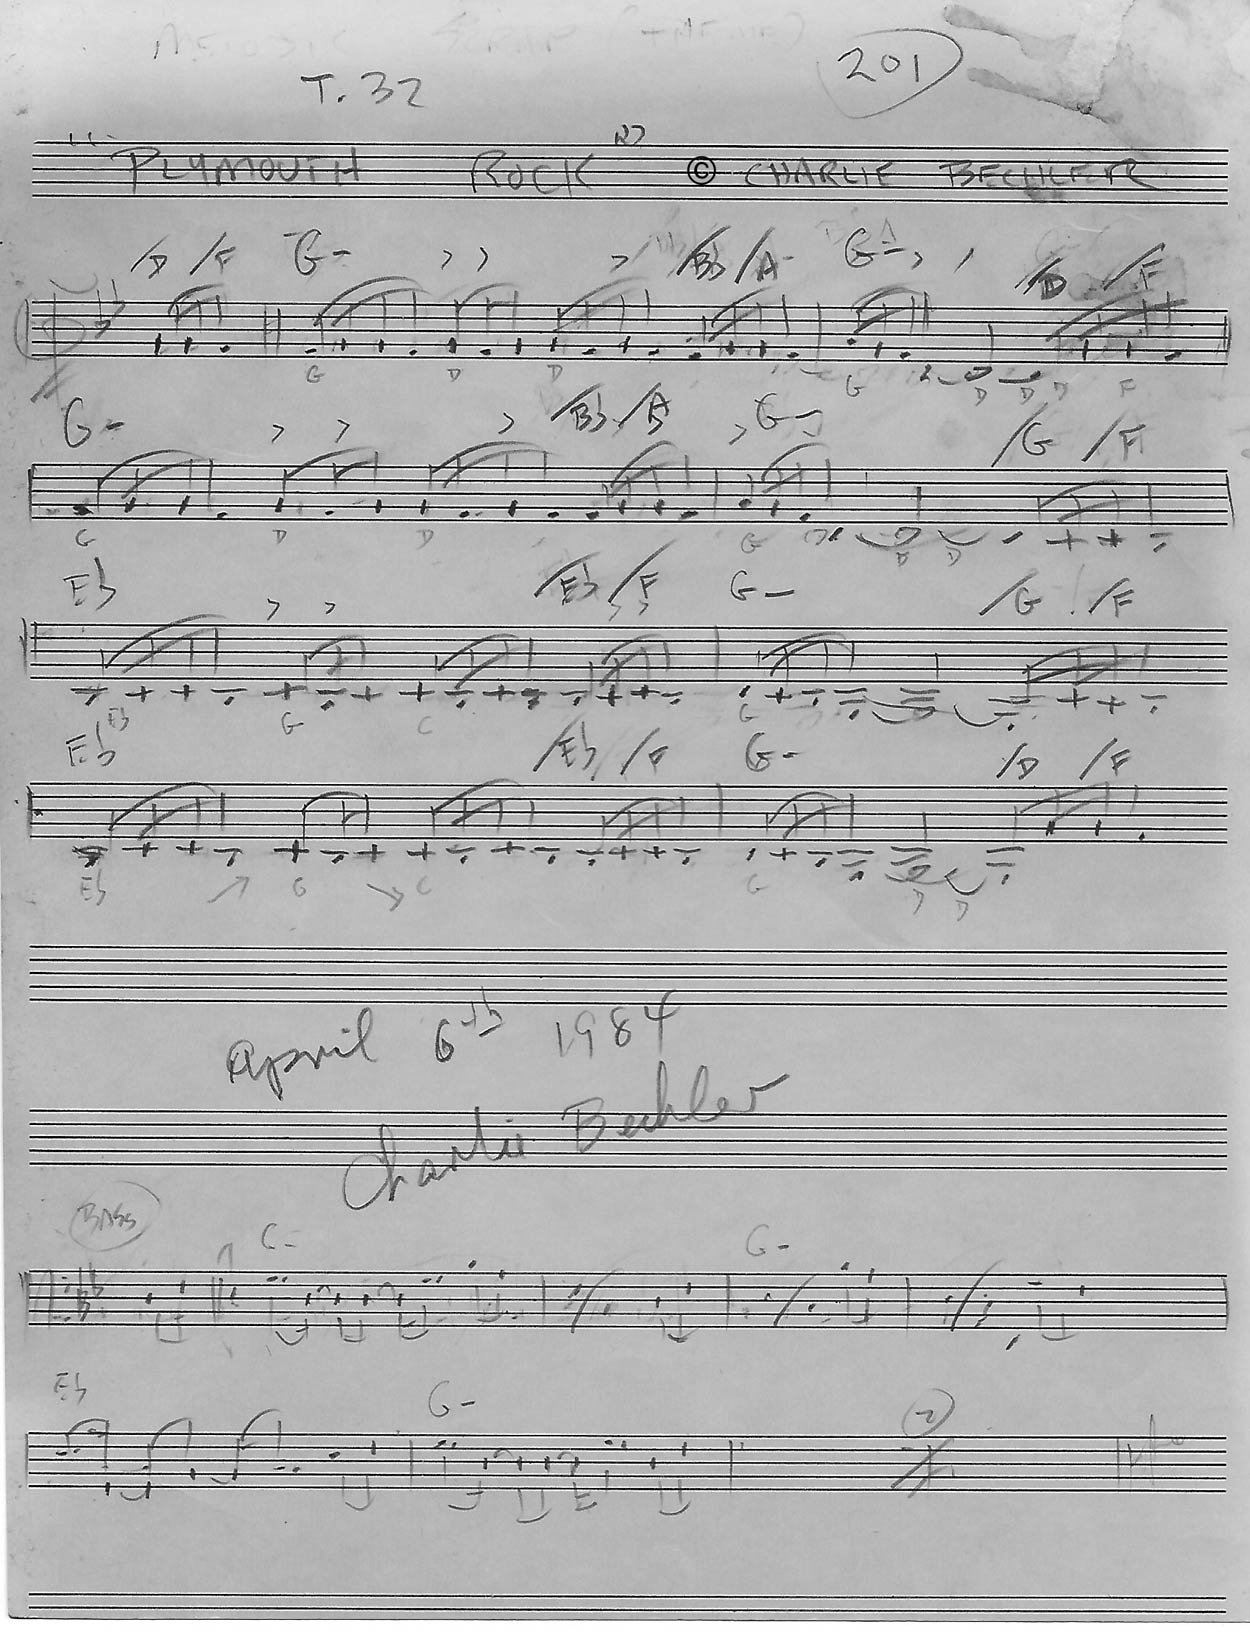 201
T. 32
PLYMOUTH ROCK © CHARLIE BECHLER
/D /F G- > > > /Bb /A- G- > /D /F
G D D G D D D F
G- > > > /Bb /A > G- /G /F
G D D G D D
Eb > > /Eb /F G- /G /F
Eb G C G
Eb /Eb /F G- /D /F
Eb G C G D D
April 6th 1984
Charlie Bechler
BASS
G- G-
Eb G- 2